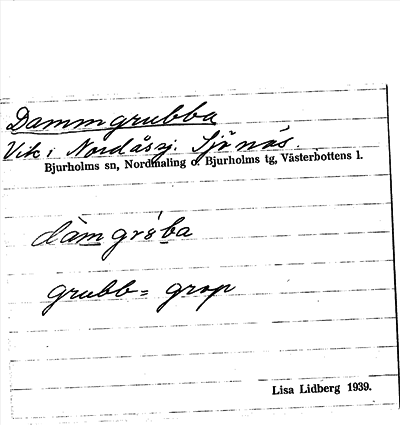 Dammgrubba
Vik i Nordåssj. Sjönäs.
Bjurholms sn, Nordmaling o. Bjurholms tg, Västerbottens l.
grubb = grop
Lisa Lidberg 1939.